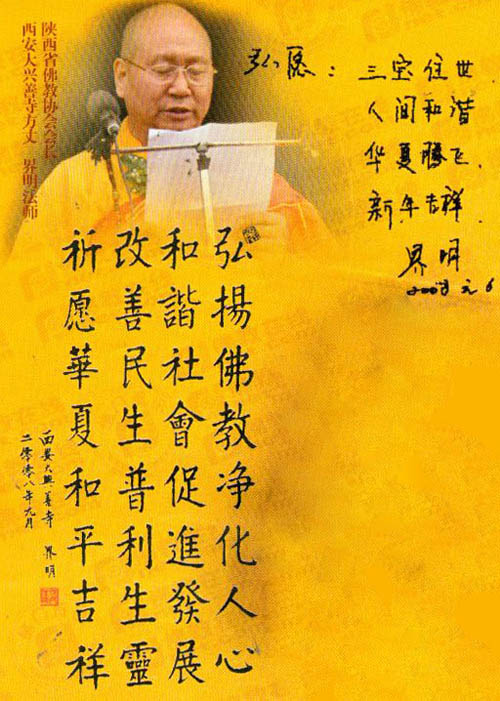 陕西省佛教协会会长
西安大兴善寺方丈 界明法师
弘愿：三宝住世
人间和谐
华夏腾飞.
新年吉祥.
界明
2008 元 6
弘揚佛教净化人心
和諧社會促進發展
改善民生普利生靈
祈愿華夏和平吉祥
西安大興善寺 界明
二零零八年元月